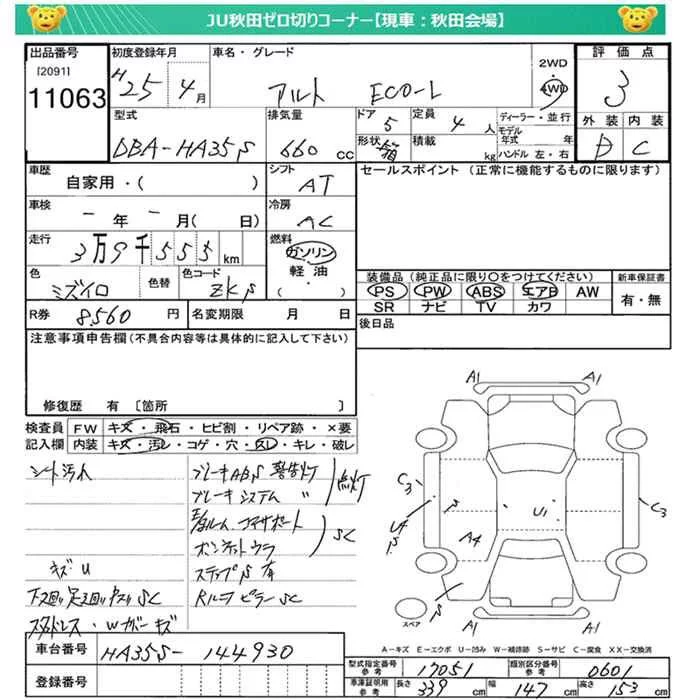 JU秋田ゼロ切りコーナー【現車：秋田会場】
出品番号 初度登録年月 車名・グレード 評価点
[2091]
11063
H25年 4月 アルト ECO-L 2WD 4WD 3
型式 排気量 ドア 定員 ディーラー・並行 外装 内装
DBA-HA35S 660cc 5 4人 モデル年式 年 D C
形状 箱 積載 kg ハンドル 左・右
車歴 シフト セールスポイント (正常に機能するものに限ります)
自家用・( ) AT
車検 冷房
－年－月( 日) AC
走行 燃料
3万9千555km ガソリン
軽油
・( )
色 色替 色コード
ミズイロ ZKS
装備品 (純正品に限り○をつけてください) 新車保証書
PS PW ABS エアB AW 有・無
SR ナビ TV カワ
R券 8560円 名変期限 月 日
後日品
注意事項申告欄(不具合内容等は具体的に記入して下さい)
修復歴 有 〔箇所 〕
検査員 FW キズ・飛石・ヒビ割・リペア跡・×要
記入欄 内装 キズ・汚レ・コゲ・穴・スレ・キレ・破レ
シート汚れ
ブレーキABS 警告灯 点灯
ブレーキシステム 〃
コアサポート SC
ボンネットウラ
キズ U
ステップS有
下廻り足廻りサスリSC
RルーフピラーSC
キズ
A1 A1
C3 C3
U4
S
S
U1
A4
S
A1 A1
スペア
A－キズ E－エクボ U－凹み W－補修跡 S－サビ C－腐食 XX－交換済
車台番号 HA35S-144930
登録番号
型式指定番号 参考 17051 類別区分番号 参考 0601
車庫証明用 参考 長さ 339cm 幅 147cm 高さ 153cm